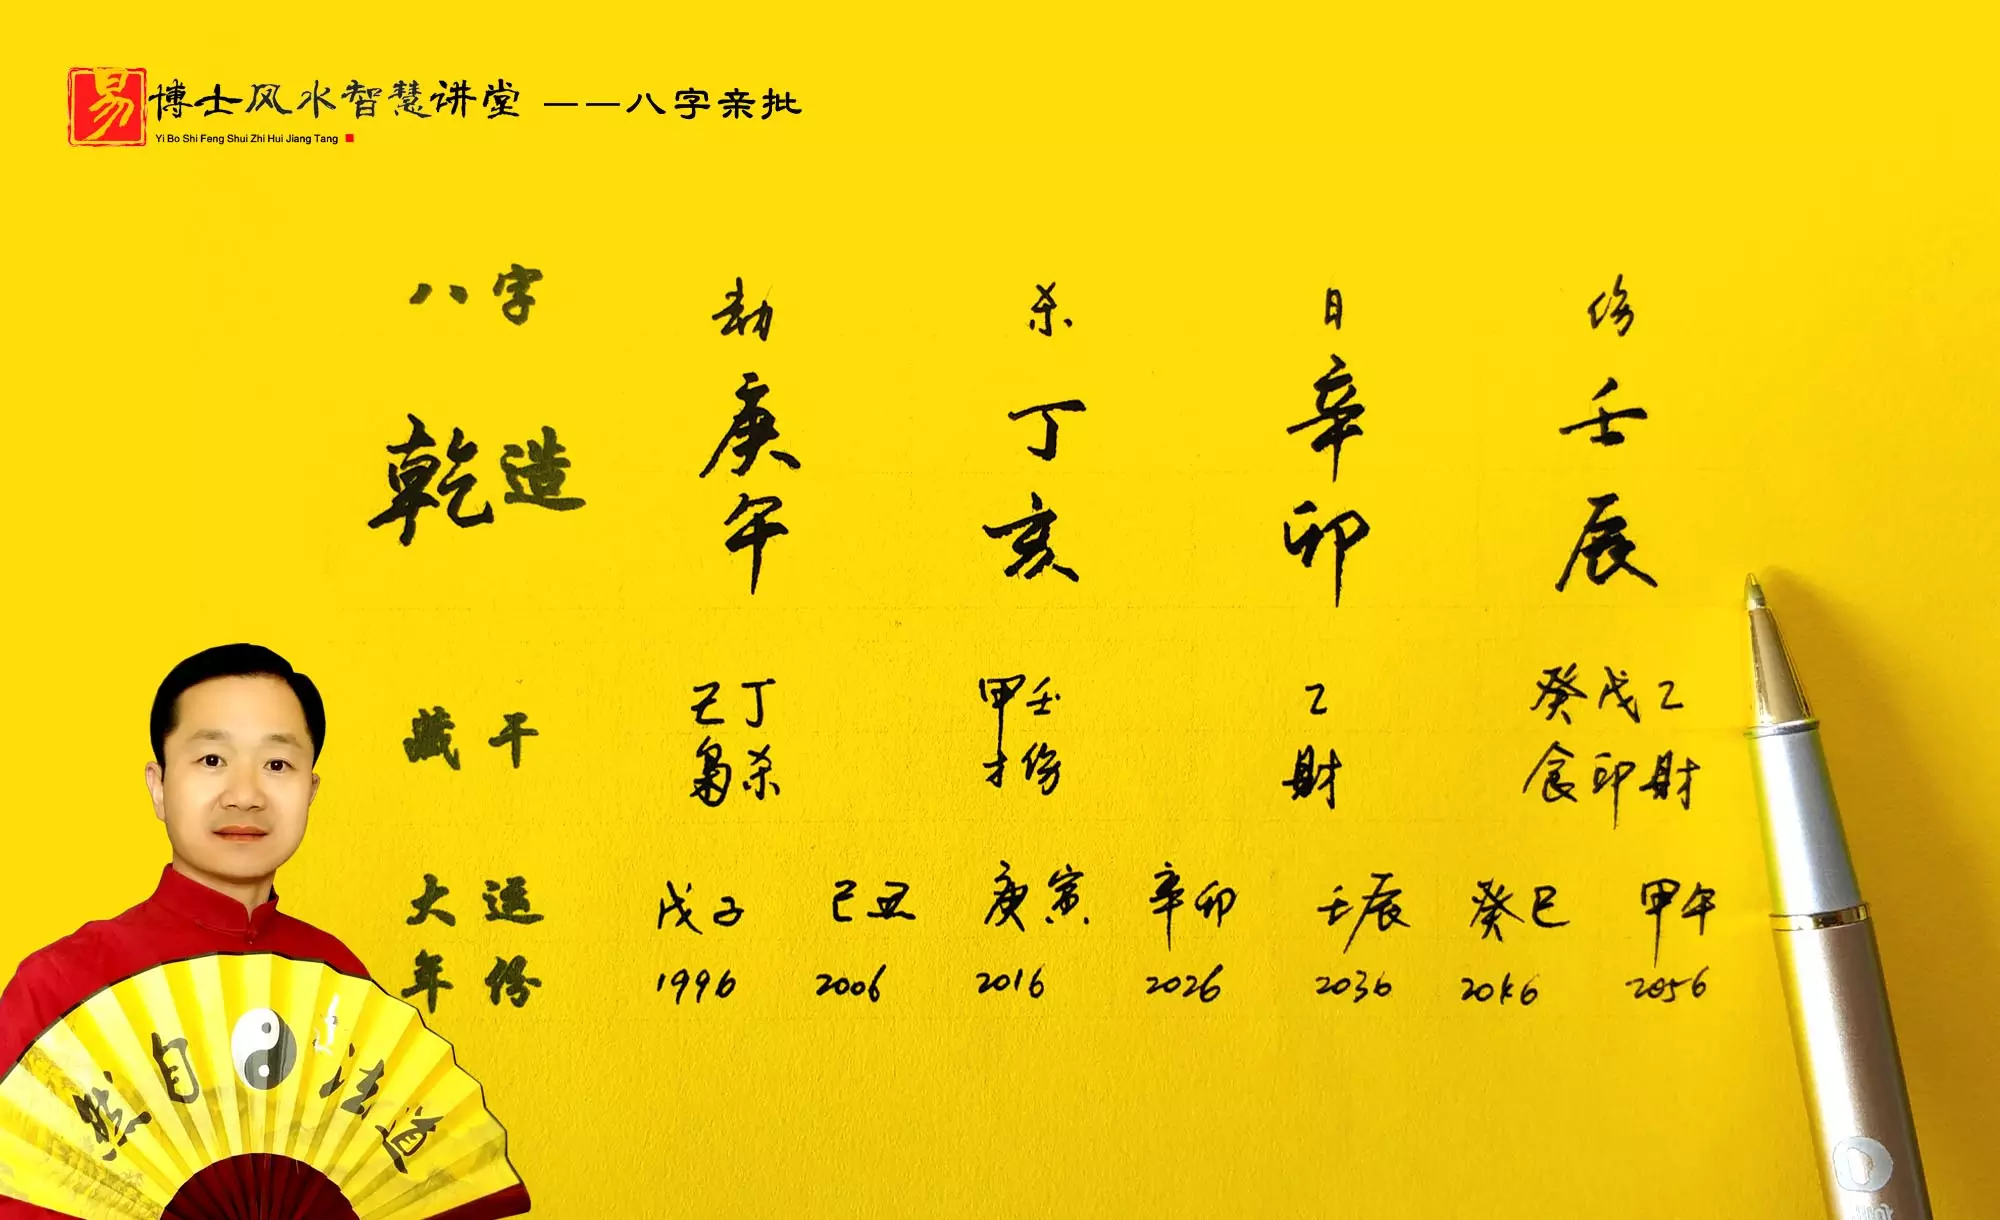 易 博士风水智慧讲堂 ——八字亲批
Yi Bo Shi Feng Shui Zhi Hui Jiang Tang
八字 劫 杀 日 伤
乾造 庚 丁 辛 壬
午 亥 卯 辰
藏干 己丁 甲壬 乙 癸戊乙
枭杀 才伤 財 食印財
大运 戊子 己丑 庚寅 辛卯 壬辰 癸巳 甲午
年份 1996 2006 2016 2026 2036 2046 2056
然自法道